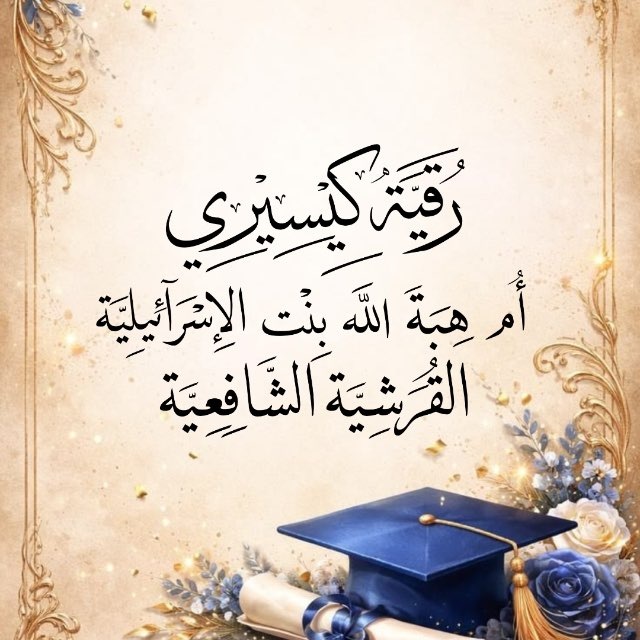 رُقَيَّةُ كِيْسِيْرِي
أُم هِبَةَ اللَّه بِنْت الإِسْرَآئِيلِيَّة
القُرَشِيَّة الشَّافِعِيَّة